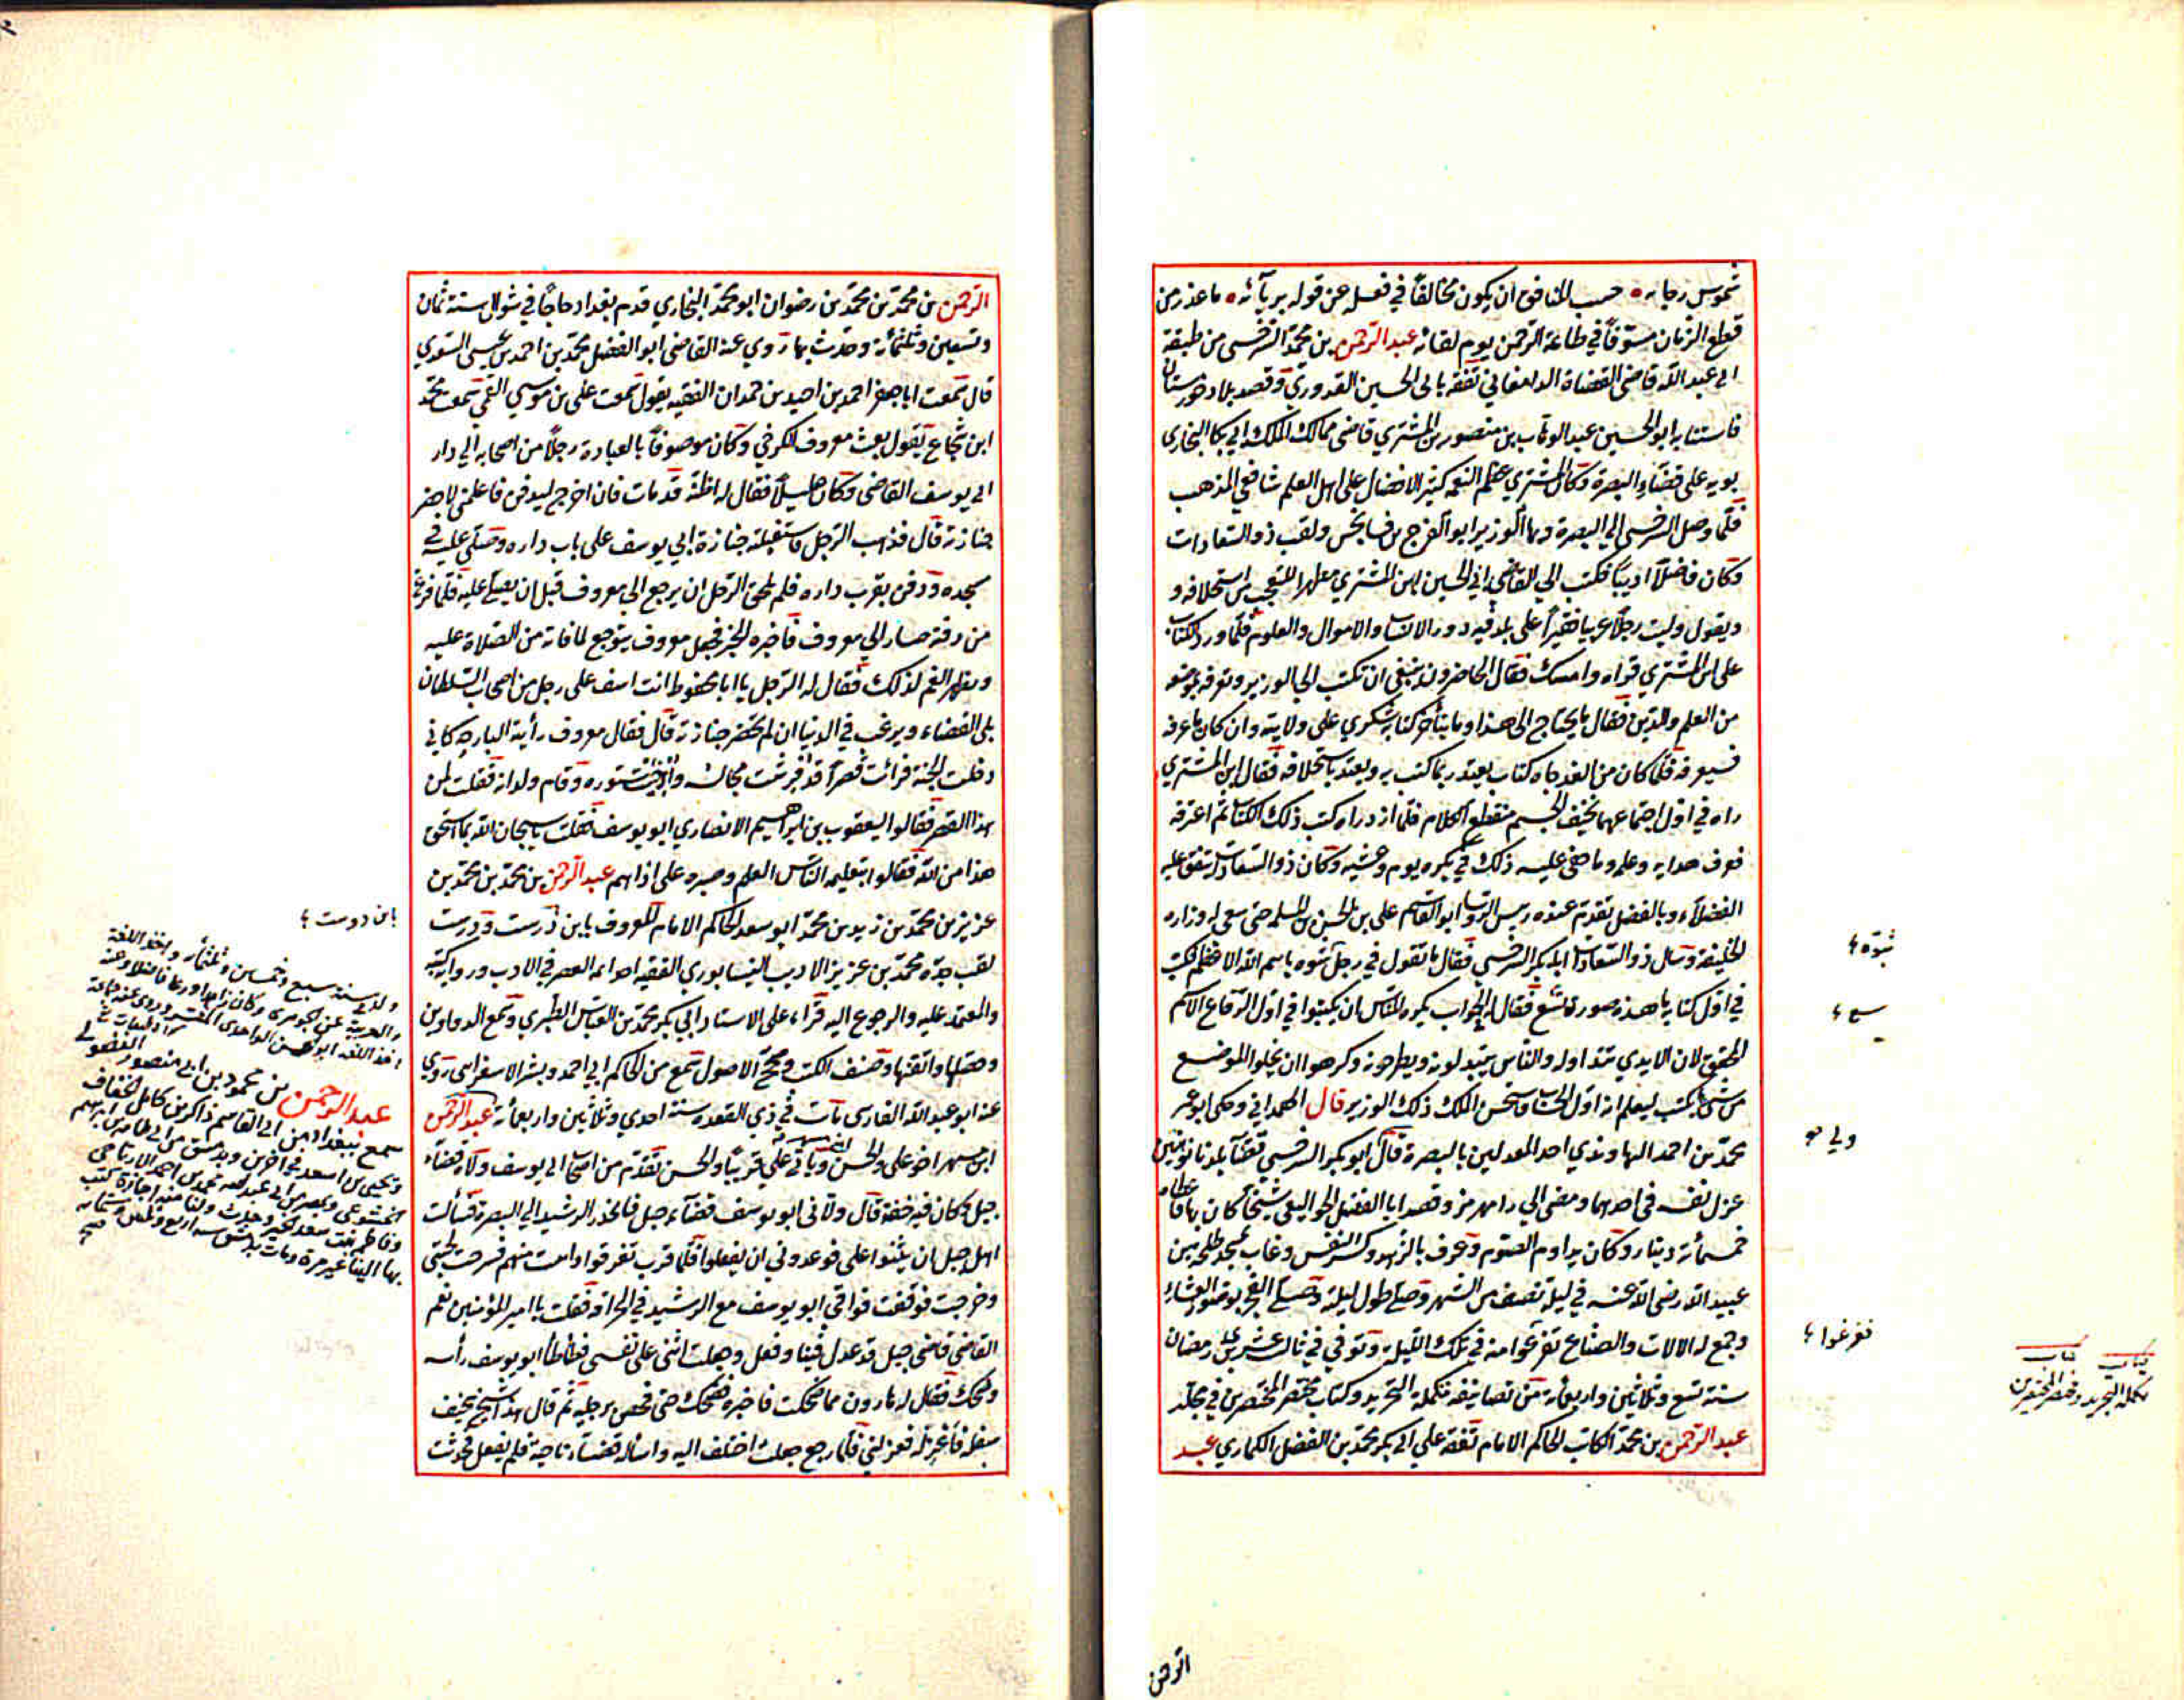 شموس رجاىه حسب المنافق ان يكون مخالفا في فعله عن قوله بريآئه ما عذر من
قطع الزمان مسوفا في طاعة الرحمن يوم لقائه عبد الرحمن بن محمد السرخسي من طبقة
ابي عبد الله قاضى القضاة الدامغاني تفقه بابى الحسين القدوري وقصد بلاد خورستان
فاستنابه ابو الحسين عبد الوهاب بن منصور بن المشتري قاضى ممالك الملك ابي كاليجار
بويه على قضاء البصرة وكان المشتري عظم النعمة كثير الافضال على اهل العلم شافعي المذهب
فلما وصل السرخسي الى البصرة وبها الوزير ابو الفرج بن فسانجس ولقب ذو السعادات
وكان فاضلا اديبا فكتب الى القاضي ابي الحسين ابن المشتري مظهرا للتعجب من استخلافه و
ويقول وليت رجلا غريبا فقيرا على بلد فيه دور الانساب والاموال والعلوم فلما ورد الكتاب
على ابن المشتري قراه وامسك فقال الحاضرون ينبغى ان تكتب الى الوزير وتعرفه موضعه
من العلم والدين فقال ما يحتاج الى هذا وما يتأخر كتابه بشكري على ولايته وان كان ما عرفه
فسيعرفه فلما كان من الغد جاه كتاب يعتذر بما كتب به ويعتد باستخلافه فقال ابن المشتري
راه في اول اجتماعهما نخيف الجسم منقطع الكلام فلما ازدراه كتب ذلك الكتاب ثم اعرفه
فعرف هدايه وعلمه وما خفى عليه ذلك في بكره يوم وعشيه وكان ذو السعادات يتفق عليه
الفضلآء وبالفضل تقدم عنده رييس الروسا ابو القاسم على بن الحسن بن المسلمه حتى سعى له وزاره
الخليفة وسال ذو السعادات ابا بكر السرخسي فقال ما تقول في رجل نبوه باسم الله الاعظم فكتب
في اول كتابه ما هذه صورة فقال الجواب يكره للناس ان يكتبوا في اول الرقاع الاسم
المحقق لان الايدي تتداوله والناس يتبدلونه ويطرحونه وكرهوا ان يخلوا الموضع
من شئ فكتب ليعلم انه اول الحساب فاستحسن الملك ذلك الوزير قال الهمداني وحكى ابو عمر
محمد بن احمد النهاوندي احد المعدلين بالبصرة قال ابو بكر السرخسي قضآ بلدنا نوبتين
عزل نفسه في احديهما ومضى الى رامهرمز وقصد ابا الفضل
خمسمأئة دينار وكان يداوم الصوم وعرف بالزهد وكسر النفس وغاب بمسجد طلحة بن
عبيد الله رضى الله عنه في ليلة نصف من الشهر وصلى طول ليلته وصلى الفجر بوضوء العشاء
وجمع له الالات والصناع تفرغوا منه في تلك الليلة وتوفي في ثالث عشرين رمضان
سنة تسع وثلاثين واربعمائة من تصانيفه تكملة التجريد وكتاب مختصر المختصرين في مجلد
عبد الرحمن بن محمد الكاتب الحاكم الامام تفقه على ابى بكر محمد بن الفضل الكماري عبد
نبوّه
فغرغوا
كتاب كتاب
تكملة التجريد ومختصر المختصرين
الرحمن
الرحمن بن محمد بن محمد بن رضوان ابو محمد البخاري قدم بغداد حاجا في شوال سنة ثمان
وتسعين وثلثمائة وحدث بها روي عنه القاضى ابو الفضل محمد بن احمد بن عيسى السعدي
قال سمعت ابا جعفر احمد بن احيد بن حمدان الفقيه يقول سمعت على بن موسى القمي سمعت محمد
ابن شجاع يقول بعث معروف الكرخي وكان موصوفا بالعبادة رجلا من اصحابه الى دار
ابي يوسف القاضى وكان عليلا فقال له اظنه قد مات فان اخرج ليدفن فاعلمنى لاحضر
جنازته قال فذهب الرجل فاستقبلته جنازة ابي يوسف على باب داره وصلى عليه في
مسجده ودفن بقرب داره فلم يلحق الرجل ان يرجع الى معروف قبل ان يصلى عليه فلما فرغ
من دفنه صار الى معروف فاخبره الخبر فجعل معروف يتوجع لما فاته من الصلاة عليه
ويظهر الغم لذلك فقال له الرجل يا ابا محفوظ انت اسف على رجل من اصحاب السلطان
يلى القضاء ويرغب في الدنيا ان لم تحضر جنازته قال فقال معروف رأيت البارحة كاني
دخلت الجنة فرائت قصرا قد فرشت مجالسه وارخيت ستوره وقام ولدانه فقلت لمن
هذا القصر فقالوا ليعقوب بن ابراهيم الانصاري ابو يوسف فقلت يا سبحان الله بما استحق
هذا من الله فقالوا بتعليمه الناس العلم وصبره على اذاهم عبد الرحمن بن محمد بن محمد بن
عزيز بن محمد بن زيد بن محمد ابو سعد الحاكم الامام المعروف بابن درست ودرست
لقب جده محمد بن عزيز الاديب النيسابوري الفقيه احد ائمه العصر في الادب ورواية كتبه
والمعتمد عليه والرجوع اليه قراء على الاستاد ابي بكر محمد بن العباس الطبري وسمع الدواوين
وحصلها واتقنها وصنف الكتب وصحح الاصول سمع من الحاكم ابي احمد وبشر الاسفراىنى روي
عنه ابو عبد الله الفارسى مات في ذي القعده سنة احدي وثلاثين واربعمأئة عبد الرحمن
ابن مسهر اخو على والحسن وياتي علي قريبا والحسن تقدم من اصحاب ابى يوسف ولاه قضاء
جبل وكان فيه خفة قال ولاني ابو يوسف قضآء جبل فانحدر الرشيد الى البصرة فسألت
اهل جبل ان يثنوا على فوعدوني ان يفعلوا فلما قرب تفرقوا وايست منهم فسرحت لحيتى
وخرجت فوقفت فوافى ابو يوسف مع الرشيد في الحراقة فقلت يا امير المؤمنين نعم
القاضى قاضى جبل قد عدل فينا وفعل وجعلت اثنى على نفسى فطاطأ ابو يوسف رأسه
وضحك فقال له هارون مما ضحكت فاخبره فضحك حتى فحص برجليه ثم قال هذا شيخ سخيف
سفله فأعزله فعزلني فلما رجع جعلت اختلف اليه واساله قضاء ناحية فلم يفعل فحدثت
بابن دوست
ولد سنة سبع وخمسين وثلثمأئة واخذ اللغة
والعربية عن الجوهرى وكان زاهدا ورعا فاضلا وعنه
اخذ اللغه ابو الحسن الواحدى المفسر وروى عنه جماعة
عبد الرحمن بن محمود بن ابى منصور
سمع ببغداد من ابى القاسم ذاكر بن كامل الخفاف
ويحيى بن اسعد في اخرين وبدمشق من ابى طاهر بن ابراهيم
الخشوعى وبمصر من ابى عبد الله محمد بن احمد الارتاحى
وفاطمة بنت سعد الخير وحدث ولنا منه اجازة كتب
بها الينا غير مرة ومات بدمشق سنه اربع وثلثين وستمايه